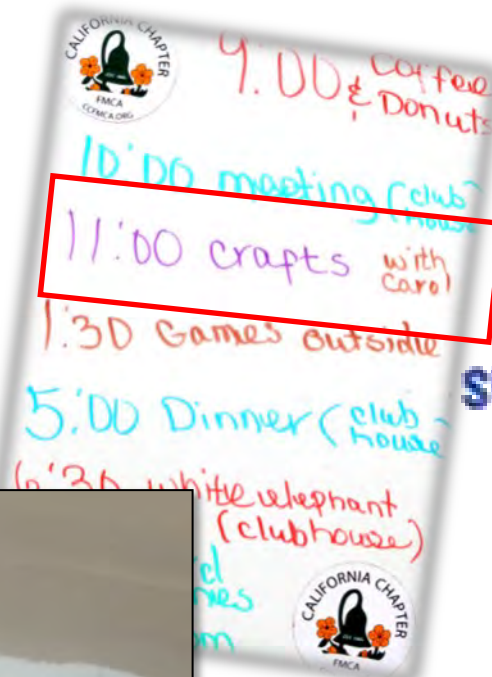 CALIFORNIA CHAPTER
FMCA
CCFMCA.ORG
9:00 Coffee
& Donuts
10:00 meeting (club
house
11:00 crafts with
Carol
1:30 Games outside
5:00 Dinner (club-
house
6:30 white elephant
(clubhouse)
CALIFORNIA CHAPTER
FMCA